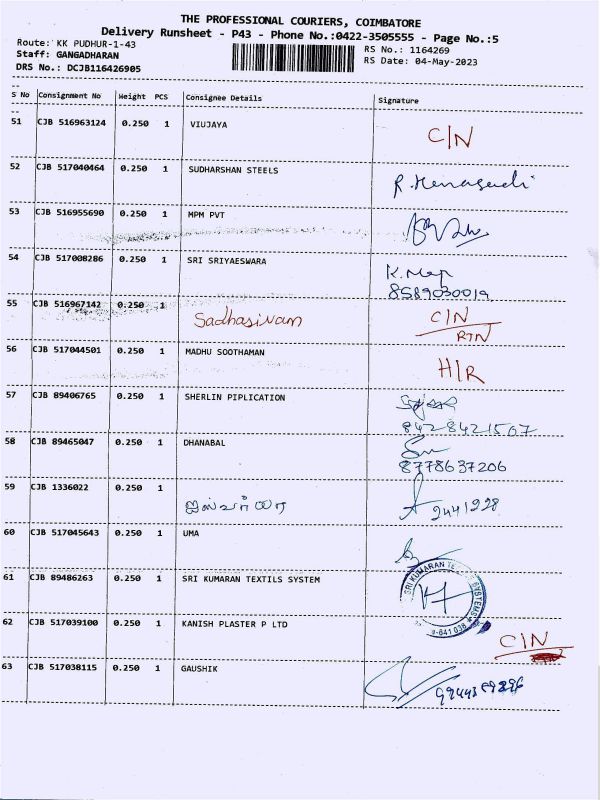 THE PROFESSIONAL COURIERS, COIMBATORE
Delivery Runsheet - P43 - Phone No.:0422-3505555 - Page No.:5
Route: KK PUDHUR-1-43
RS No.: 1164269
Staff: GANGADHARAN
RS Date: 04-May-2023
DRS No.: DCJB116426905
S No Consignment No Weight PCS Consignee Details Signature
51 CJB 516963124 0.250 1 VIUJAYA C/N
52 CJB 517040464 0.250 1 SUDHARSHAN STEELS
53 CJB 516955690 0.250 1 MPM PVT
54 CJB 517008286 0.250 1 SRI SRIYAESWARA
8589030019
55 CJB 516967142 0.250 1 Sadhasivam C/N
RTN
56 CJB 517044501 0.250 1 MADHU SOOTHAMAN H/R
57 CJB 89406765 0.250 1 SHERLIN PIPLICATION
8428421507
58 CJB 89465047 0.250 1 DHANABAL
8778637206
59 CJB 1336022 0.250 1 9441928
60 CJB 517045643 0.250 1 UMA
61 CJB 89486263 0.250 1 SRI KUMARAN TEXTILS SYSTEM
62 CJB 517039100 0.250 1 KANISH PLASTER P LTD C/N
63 CJB 517038115 0.250 1 GAUSHIK